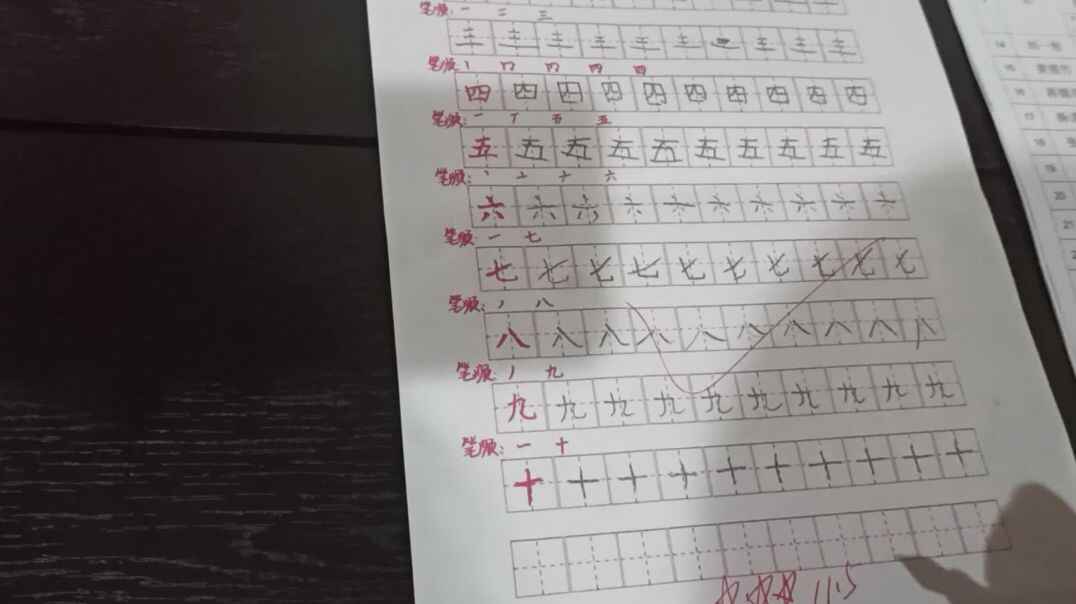 笔顺: 一 二 三
三 三 三 三 三 三 三 三 三 三
笔顺: 丨 冂 四 四 四
四 四 四 四 四 四 四 四 四 四
笔顺: 一 丅 五 五
五 五 五 五 五 五 五 五 五 五
笔顺: 丶 亠 六 六
六 六 六 六 六 六 六 六 六 六
笔顺: 一 七
七 七 七 七 七 七 七 七 七 七
笔顺: 丿 八
八 八 八 八 八 八 八 八 八 八
笔顺: 丿 九
九 九 九 九 九 九 九 九 九 九
笔顺: 一 十
十 十 十 十 十 十 十 十 十 十
11.5
14
15
16
17
18
19
20
21